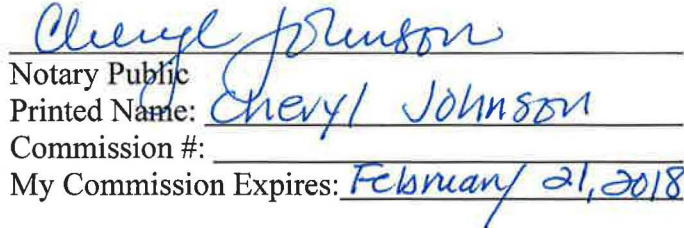 Cheryl Johnson
Notary Public
Printed Name: Cheryl Johnson
Commission #:
My Commission Expires: February 21, 2018